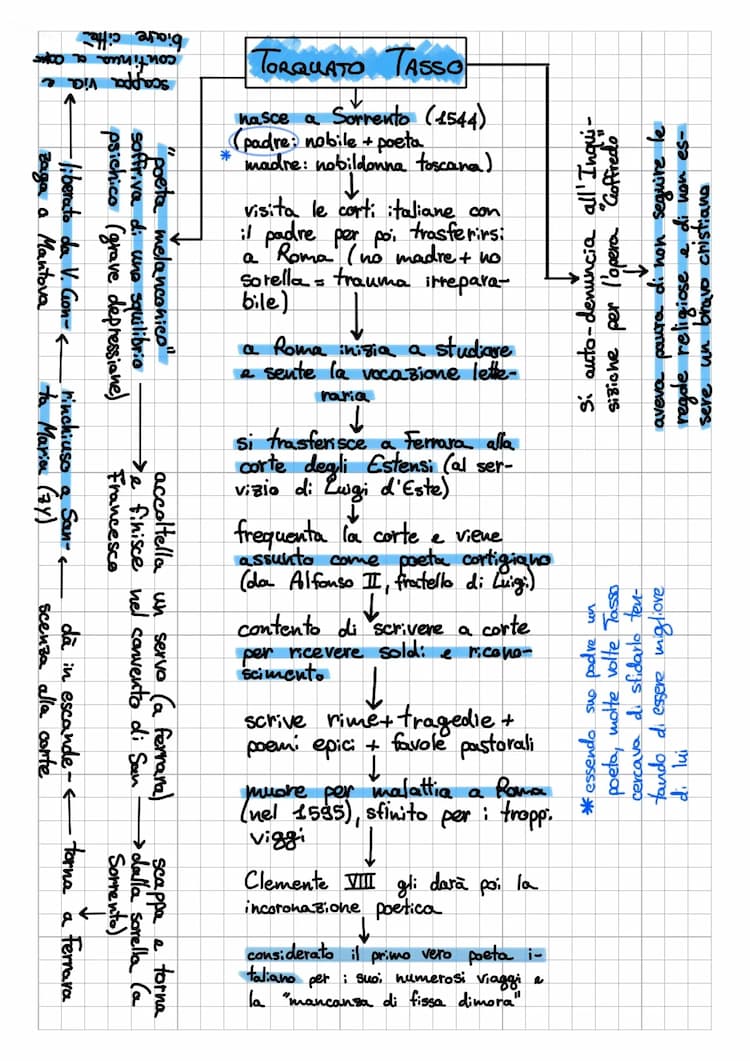 TORQUATO TASSO
nasce a Sorrento (1544)
(padre: nobile + poeta
* madre: nobildonna toscana)
visita le corti italiane con
il padre per poi trasferirsi
a Roma (no madre + no
sorella = trauma irrepara-
bile)
a Roma inizia a studiare
e sente la vocazione lette-
raria
si trasferisce a Ferrara alla
corte degli Estensi (al ser-
vizio di Luigi d'Este)
frequenta la corte e viene
assunto come poeta cortigiano
(da Alfonso II, fratello di Luigi)
contento di scrivere a corte
per ricevere soldi e ricono-
scimento
scrive rime + tragedie +
poemi epici + favole pastorali
muore per malattia a Roma
(nel 1595), sfinito per i troppi
viggi
Clemente VIII gli darà poi la
incoronazione poetica
considerato il primo vero poeta i-
taliano per i suoi numerosi viaggi e
la "mancanza di fissa dimora"
"poeta melanconico"
soffriva di uno squilibrio
psichico (grave depressione)
accoltella un servo (a Ferrara)
e finisce nel convento di San
Francesco
scappa e torna
dalla sorella (a
Sorrento)
torna a Ferrara
dà in escande-
scenza alla corte
rinchiuso a San-
ta Maria (7y)
liberato da V. Gon-
zaga a Mantova
scappa via e
continua a
biare città
Si auto-denuncia all'Inqui-
sizione per l'opera "Goffredo"
aveva paura di non seguire le
regole religiose e di non es-
sere un bravo cristiano
* essendo suo padre un
poeta, molte volte Tasso
cercava di sfidarlo ten-
tando di essere migliore
di lui